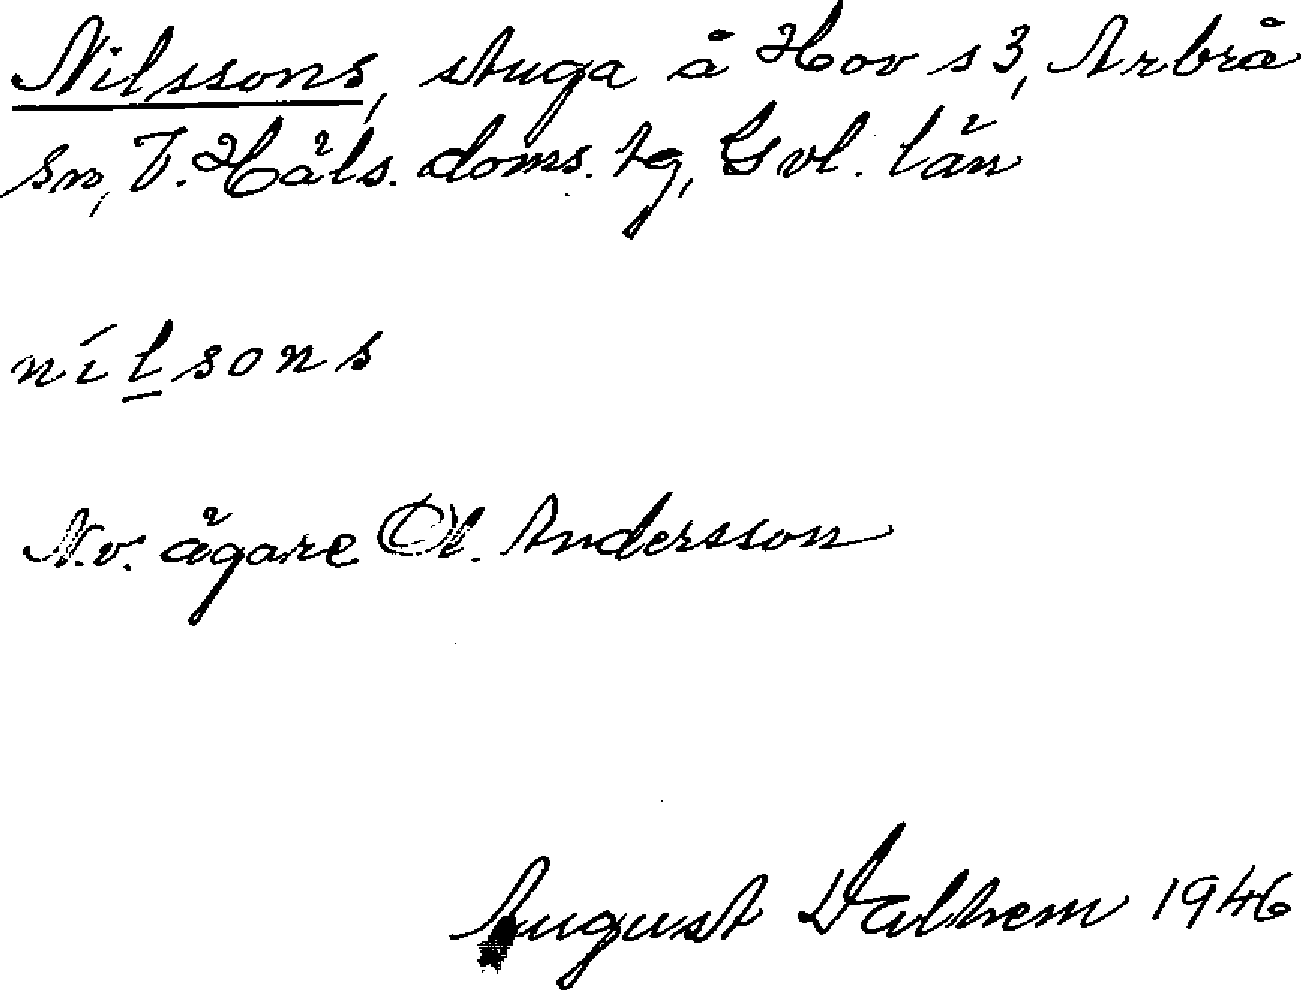 Nilssons, stuga å Hov s 3, Arbrå
sn, V. Häls. doms. tg, Gvl. län
nilsons
N.v. ägare Ol. Andersson
August Dalhem 1946